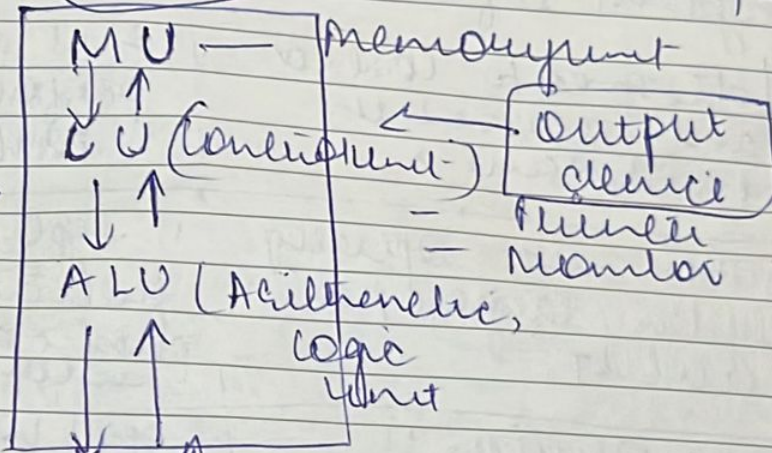 MU — Memory unit
CU (Control unit)
Output
device
- Printer
- Monitor
ALU (Arithmetic,
Logic
Unit